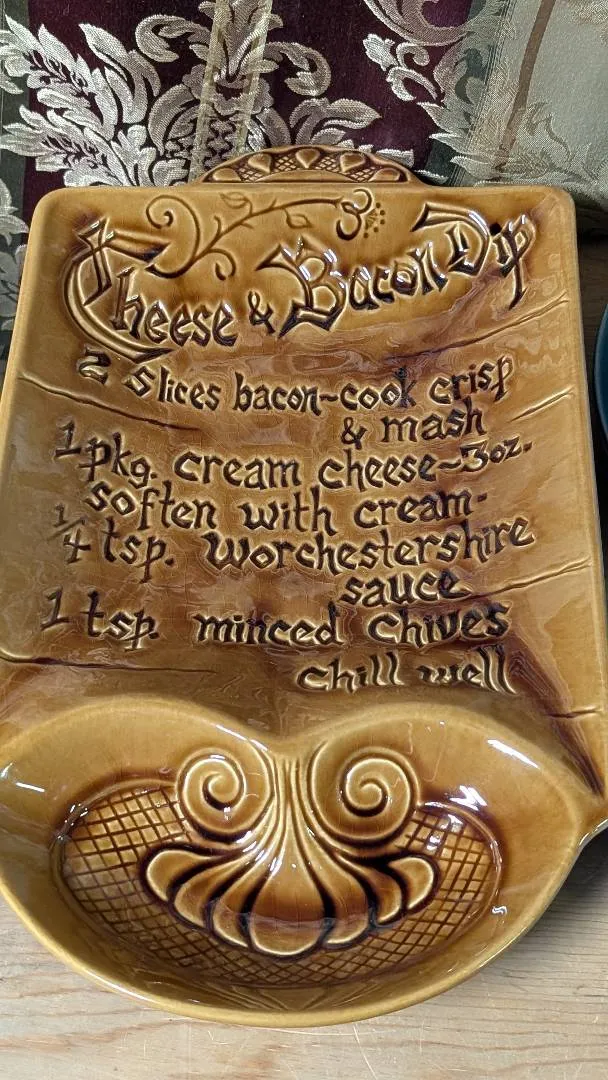 Cheese & Bacon Dip
2 Slices bacon~cook crisp
& mash
1 pkg. cream cheese~3oz.
soften with cream-
1/4 tsp. worchestershire
sauce
1 tsp. minced chives
chill well